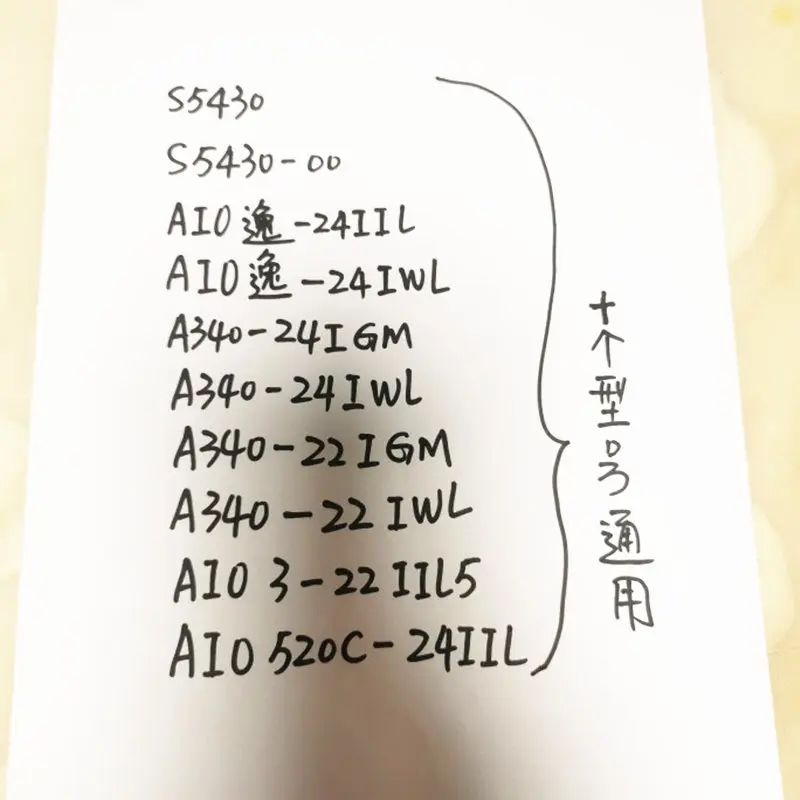 S5430
S5430-00
AIO逸-24IIL
AIO逸-24IWL
A340-24IGM
A340-24IWL
A340-22IGM
A340-22IWL
AIO 3-22IIL5
AIO 520C-24IIL
十个型号通用